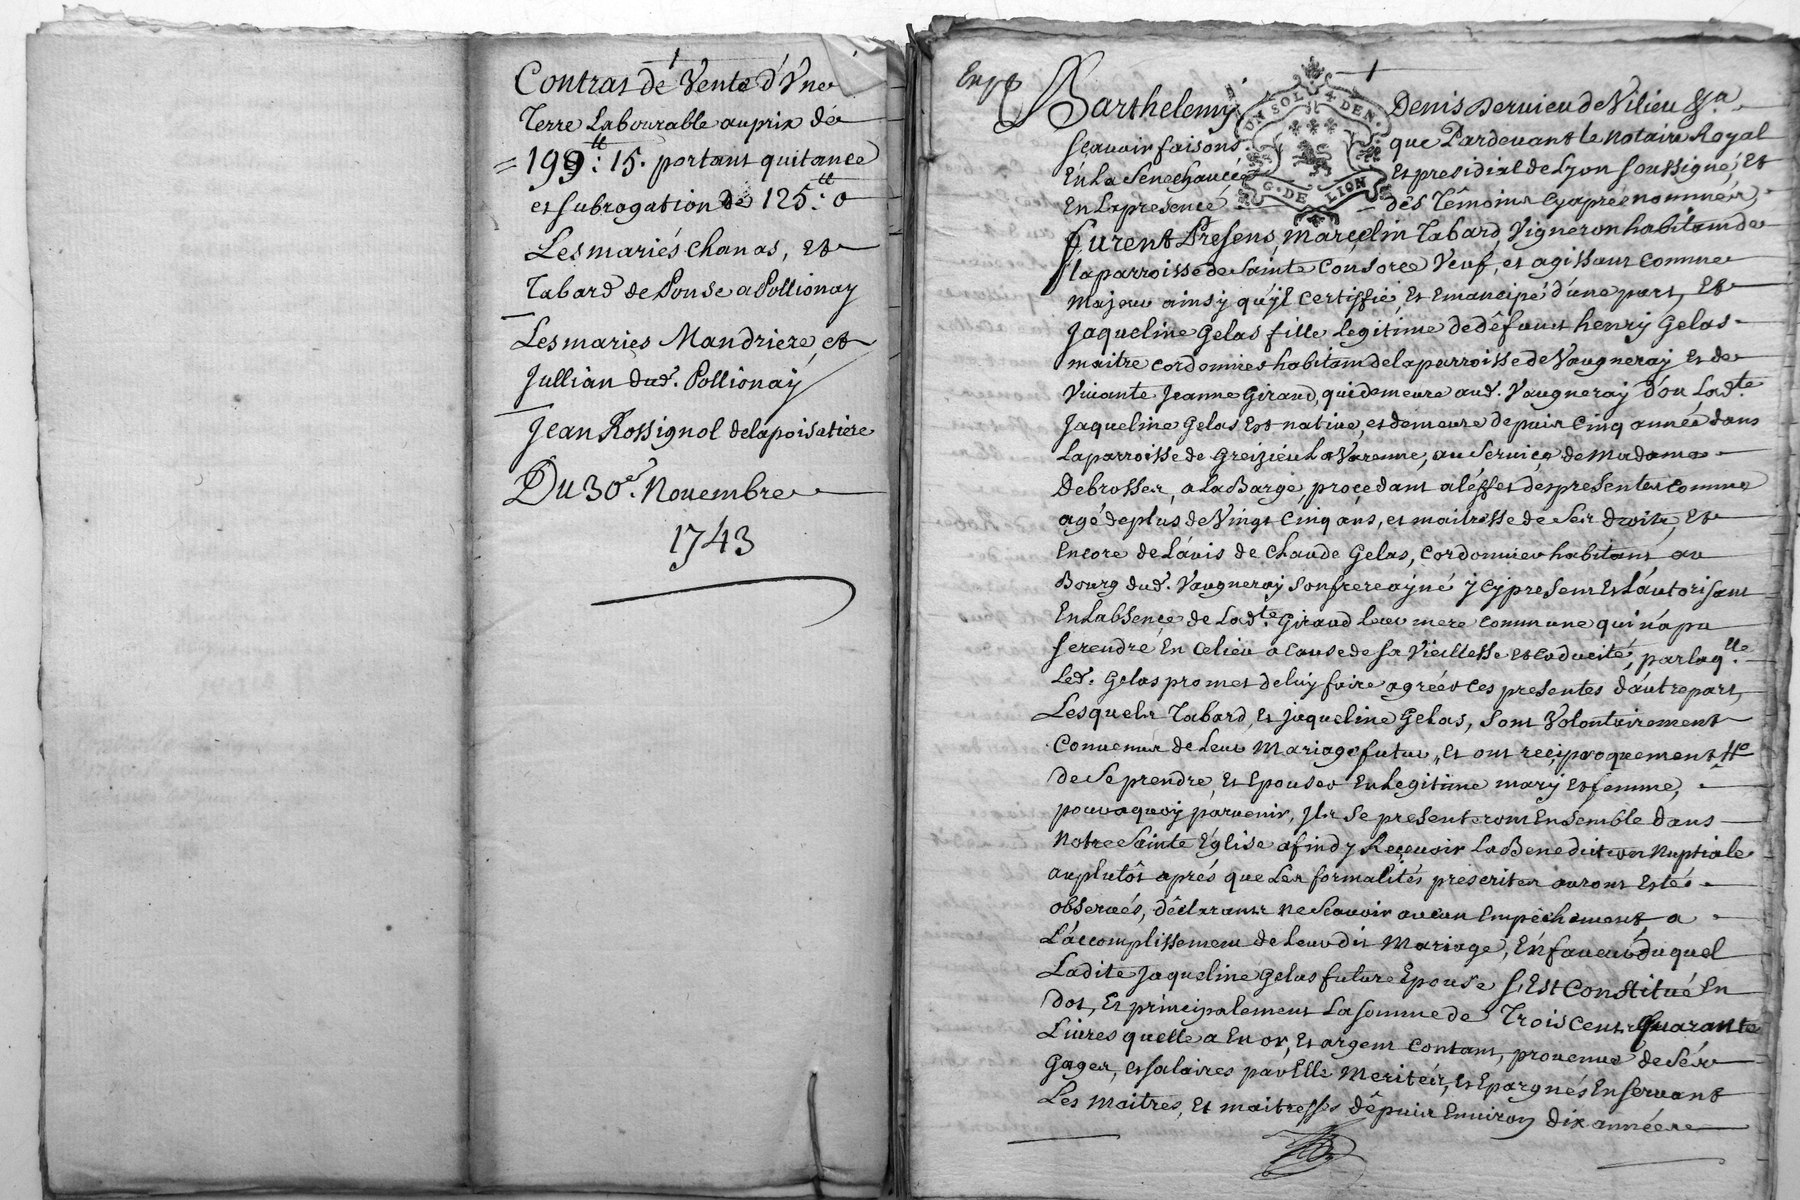 1
Contrat de Vente d'Vne
Terre Labourable au prix de
199ᵗᵗ: 15. portant quitance
et subrogation de 125ᵗᵗ: 0
Les mariés Chanas, et
Tabard de Ponse a Pollionay
Les mariés Mandriere, et
Jullian dud. Pollionay
Jean Rossignol de la poisatiere
Du 30e. Novembre
1743
1
Barthelemy Denis Dervieu de Vilieu
scavoir faisons que Pardevant le Notaire Royal
En La Senechaucée Et presidial de Lyon soussigné, Et
En La presence des Témoins cy aprés nommés,
UN SOL 4 DEN.
G. DE LION
furent Presens, Marcelin Tabard, Vigneron habitant de
la parroisse de Sainte Consorce Veuf, et agissant comme
majeur ainsy qu'jl certiffie, Et Emancipé d'une part, Et
Jaqueline Gelas fille legitime de défunt henry Gelas
maitre cordonnier habitant de la parroisse de Vaugneray et de
Vivante Jeanne Giraud, qui demeure aud. Vaugneray d'ou Lad.te
Jaqueline Gelas est native, et demeure depuis cinq année dans
La parroisse de Greizieu La Varenne, au service de Madame
Debrosser, a La Barge, procedant a l'effet des presentes comme
agé de plus de Vingt cinq ans, et maitresse de ses droits, Et
Encore de L'avis de Claude Gelas, cordonnier habitant au
Bourg dud. Vaugneray son frere ayné jcy present Et L'autorisant
En L'absence de Lad.te Giraud Leur mere commune qui n'a pu
se rendre En ce lieu a cause de sa Vieillesse et caducité, par laq.lle
Led. Gelas promet de luy faire agréer ces presentes d'autre part,
Lesquels Tabard, Et Jaqueline Gelas, sont Volontairement
Convenus de Leur Mariage futur, et ont reciproquement
de se prendre, Et Epouser En Legitime mary et femme,
pour a quoy parvenir, jls se presenteront Ensemble dans
Notre Sainte Église afin d'y Recevoir La Benediction Nuptiale
au plutôt aprés que Les formalités prescrites auront Esté
observés, déclarants ne scavoir aucun Empêchement, a
L'accomplissement de Leur dit Mariage, En faveur duquel
Ladite Jaqueline Gelas future Epouse s'Est Constitué En
Dot, Et principalement La somme de Trois Cents Quarante
Livres quelle a En or, Et argent contant, provenus de Ses
Gages, et salaires par Elle Merités, et Epargnés En servant
Les Maitres, Et maitresses dépuis Environ dix années